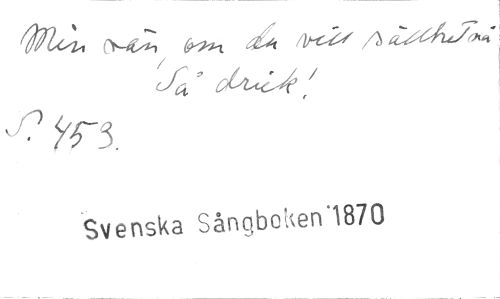 Min vän, om du vill sällhet nå
Så drick!
S. 453.
Svenska Sångboken 1870